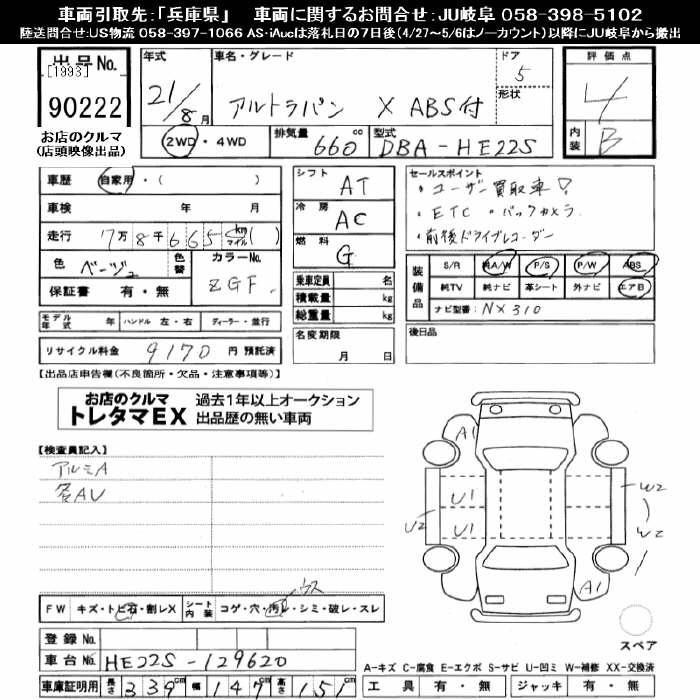 車両引取先:｢兵庫県｣　車両に関するお問合せ:JU岐阜 058-398-5102
陸送問合せ:US物流 058-397-1066 AS･iAucは落札日の7日後(4/27～5/6はノーカウント)以降にJU岐阜から搬出
出品No.
[1993]
90222
お店のクルマ
(店頭映像出品)
年式
21/8月
車名・グレード
アルトラパン X ABS付
ドア
5
形状
2WD・4WD
排気量
660 cc
型式
DBA-HE22S
評価点
4
内装
B
車歴 自家用・( )
車検 年 月
走行 7万8千665 km マイル ( )
色 ベージュ
色替
カラーNo. ZGF
保証書 有・無
シフト AT
冷房 AC
燃料 G
乗車定員 名
積載量 kg
総重量 kg
セールスポイント
・ユーザー買取車!
・ETC ・バックカメラ
・前後ドライブレコーダー
装備品
S/R 純A/W P/S P/W ABS
純TV 純ナビ 革シート 外ナビ エアB
ナビ型番: NX310
モデル年式 年 ハンドル 左・右 ディーラー・並行
リサイクル料金 9170 円 預託済
名変期限
月 日
後日品
【出品店申告欄(不良箇所・欠品・注意事項等)】
お店のクルマ
トレタマEX
過去1年以上オークション
出品歴の無い車両
【検査員記入】
アルミA
各AU
FW キズ・トビ石・割レX
シート内装 コゲ・穴・汚レ・シミ・破レ・スレ
ウス
登録No.
車台No. HE22S-129620
車庫証明用 長さ 339cm 幅 147cm 高さ 151cm
A1
U1
U1
U2
W2
W2
A1
スペア
A-キズ C-腐食 E-エクボ S-サビ U-凹ミ W-補修 XX-交換済
工具 有・無 ジャッキ 有・無